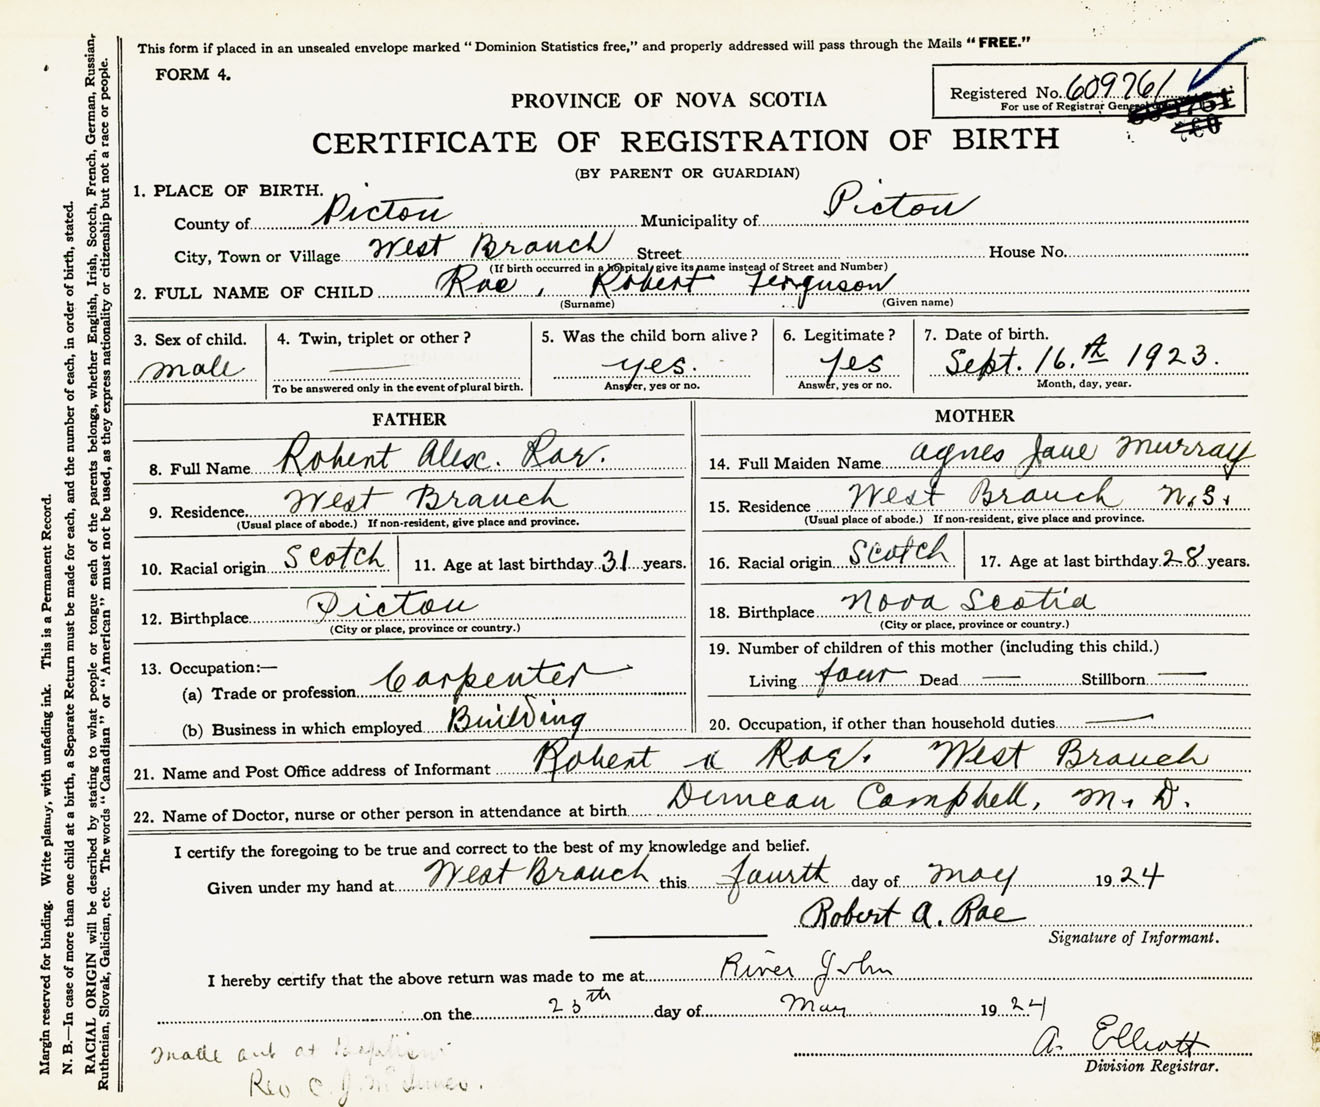 This form if placed in an unsealed envelope marked "Dominion Statistics free," and properly addressed will pass through the Mails "FREE."
FORM 4.
Registered No. 609761
For use of Registrar General
PROVINCE OF NOVA SCOTIA
CERTIFICATE OF REGISTRATION OF BIRTH
(BY PARENT OR GUARDIAN)
1. PLACE OF BIRTH.
County of Pictou Municipality of Pictou
City, Town or Village West Branch Street House No.
(If birth occurred in a hospital, give its name instead of Street and Number)
2. FULL NAME OF CHILD Rae, Robert Ferguson
(Surname) (Given name)
3. Sex of child. male
4. Twin, triplet or other? —
To be answered only in the event of plural birth.
5. Was the child born alive? yes.
Answer, yes or no.
6. Legitimate? yes
Answer, yes or no.
7. Date of birth. Sept. 16.th 1923.
Month, day, year.
FATHER
8. Full Name Robert Alex. Rae.
9. Residence West Branch
(Usual place of abode.) If non-resident, give place and province.
10. Racial origin Scotch 11. Age at last birthday 31 years.
12. Birthplace Pictou
(City or place, province or country.)
13. Occupation:—
(a) Trade or profession Carpenter
(b) Business in which employed Building
MOTHER
14. Full Maiden Name Agnes Jane Murray
15. Residence West Branch N.S.
(Usual place of abode.) If non-resident, give place and province.
16. Racial origin Scotch 17. Age at last birthday 28 years.
18. Birthplace Nova Scotia
(City or place, province or country.)
19. Number of children of this mother (including this child.)
Living four Dead — Stillborn —
20. Occupation, if other than household duties —
21. Name and Post Office address of Informant Robert A Rae. West Branch
22. Name of Doctor, nurse or other person in attendance at birth Duncan Campbell, M.D.
I certify the foregoing to be true and correct to the best of my knowledge and belief.
Given under my hand at West Branch this fourth day of May 1924
Robert A. Rae
Signature of Informant.
I hereby certify that the above return was made to me at River John
on the 23th day of May 1924
A. Elliott
Division Registrar.
made out at
Rev C. J.
Margin reserved for binding. Write plainly, with unfading ink. This is a Permanent Record.
N. B.—In case of more than one child at a birth, a Separate Return must be made for each, and the number of each, in order of birth, stated.
RACIAL ORIGIN will be described by stating to what people or tongue each of the parents belongs, whether English, Irish, Scotch, French, German, Russian,
Ruthenian, Slovak, Galician, etc. The words "Canadian" or "American" must not be used, as they express nationality or citizenship but not a race or people.